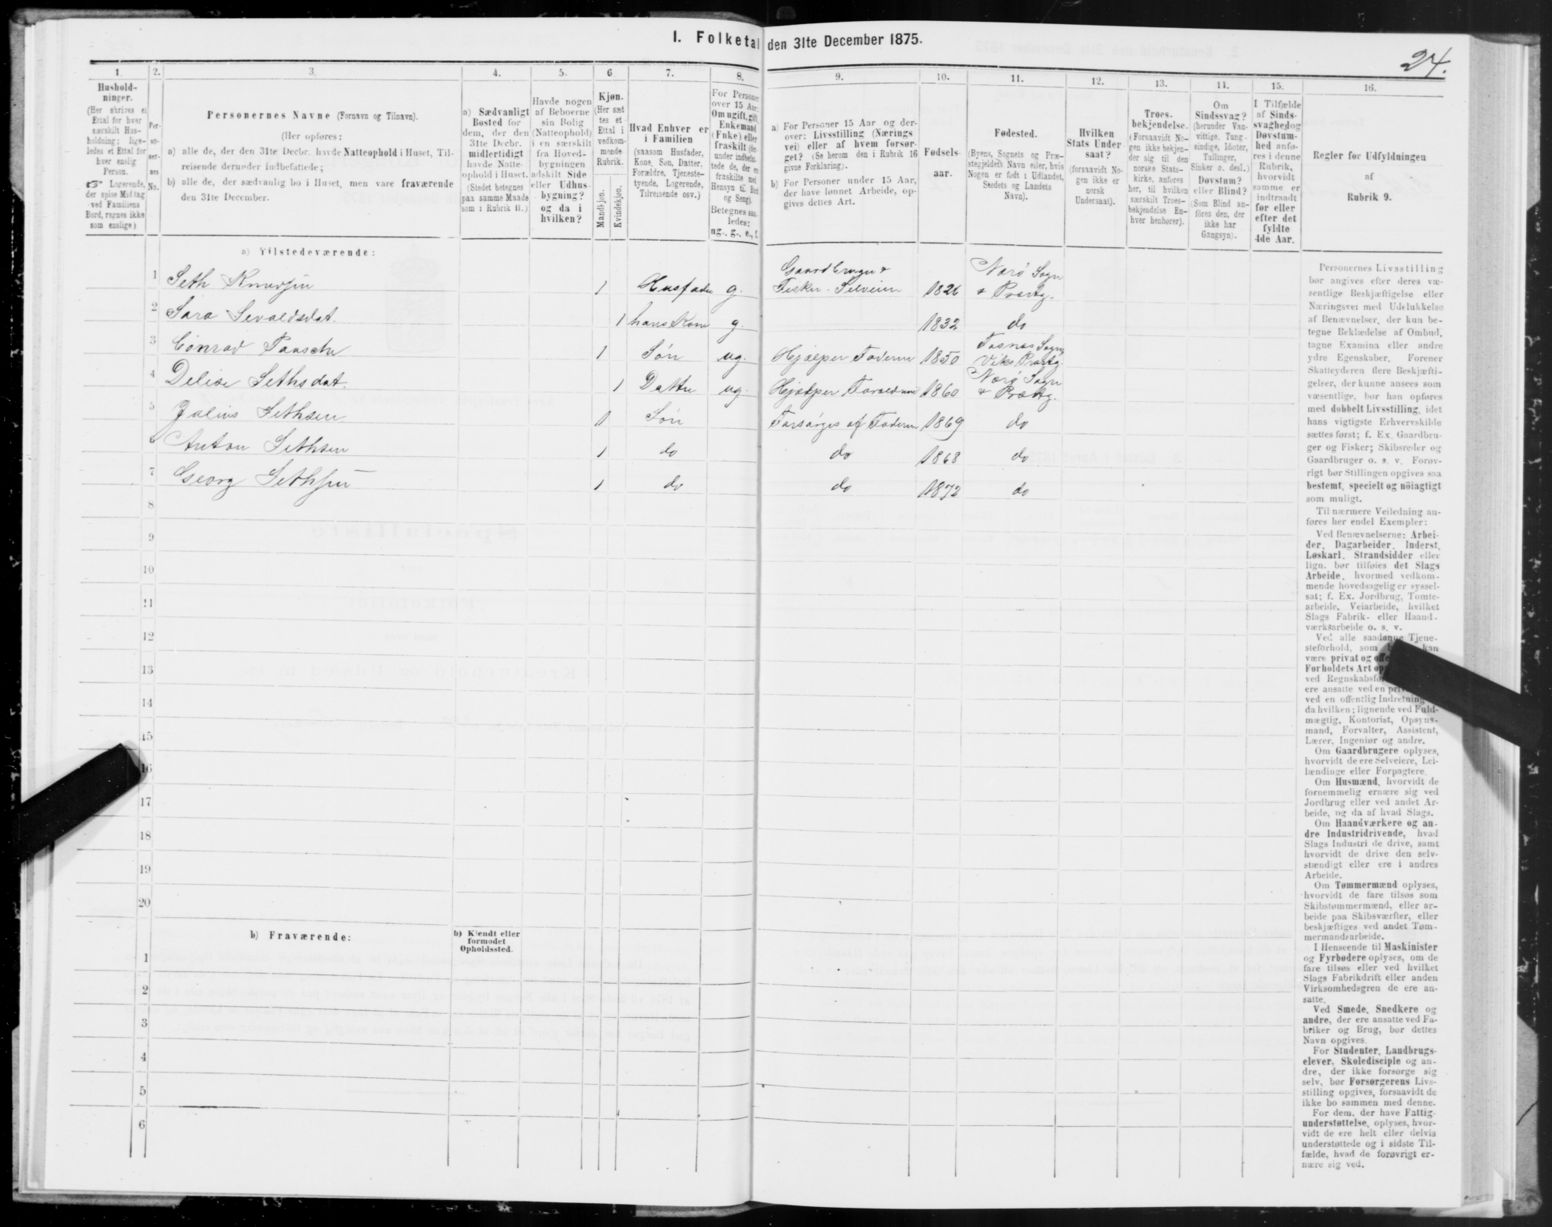 I. Folketal den 31te December 1875.
24.
1.
Hushold-
ninger.
(Her skrives et
Ettal for hver
særskilt Hus-
holdning; lige-
ledes et Ettal for
hver enslig
Person.
☞ Logerende,
der spise Middag
ved Familiens
Bord, regnes ikke
som enslige.)
2.
Per-
so-
ner-
nes
No.
3.
Personernes Navne (Fornavn og Tilnavn).
(Her opføres:
a) alle de, der den 31te Decbr. havde Natteophold i Huset, Til-
reisende derunder indbefattede;
b) alle de, der sædvanlig bo i Huset, men vare fraværende
den 31te December.
4.
a) Sædvanligt
Bosted for
dem, der den
31te Decbr.
midlertidigt
havde Natte-
ophold i Huset.
(Stedet betegnes
paa samme Maade
som i Rubrik 11.)
5.
Havde nogen
af Beboerne
sin Bolig
(Natteophold)
i en særskilt
fra Hoved-
bygningen
adskilt Side
eller Udhus-
bygning?
og da i
hvilken?
6
Kjøn.
(Her sæt
tes et
Ettal i
vedkom-
mende
Rubrik.
Mandkjøn.
Kvindekjøn.
7.
Hvad Enhver er
i Familien
(saasom Husfader,
Kone, Søn, Datter,
Forældre, Tjeneste-
tyende, Logerende,
Tilreisende osv.)
8.
For Personer
over 15 Aar:
Om ugift, gift,
Enkemand
(Enke) eller
fraskilt (der-
under indbefat-
tede de, der ere
fraskilte med
Hensyn til Bord
og Seng).
Betegnes saa-
ledes:
ug., g., e., f.
9.
a) For Personer 15 Aar og der-
over: Livsstilling (Nærings
vei) eller af hvem forsør-
get? (Se herom den i Rubrik 16
givne Forklaring).
b) For Personer under 15 Aar,
der have lønnet Arbeide, op-
gives dettes Art.
10.
Fødsels-
aar.
11.
Fødested.
(Byens, Sognets og Præ-
stegjeldets Navn eller, hvis
Nogen er født i Udlandet,
Stedets og Landets
Navn).
12.
Hvilken
Stats Under
saat?
(forsaavidt No-
gen ikke er
norsk
Undersaat).
13.
Troes-
bekjendelse.
(Forsaavidt No-
gen ikke bekjen-
der sig til den
norske Stats-
kirke, anføres
her, til hvilken
særskilt Troes-
bekjendelse En-
hver henhører).
14.
Om
Sindssvag?
(herunder Van-
vittige, Tung-
sindige, Idioter,
Tullinger,
Sinker o. desl.)
Døvstum?
eller Blind?
(Som Blind an-
føres den, der
ikke har
Gangsyn).
15.
I Tilfælde
af Sinds-
svaghed og
Døvstum-
hed anfø-
res i denne
Rubrik,
hvorvidt
samme er
indtraadt
før eller
efter det
fyldte
4de Aar.
16.
Regler for Udfyldningen
af
Rubrik 9.
a) Tilstedeværende:
1 Seth Knudsen 1 Husfader g. Gaardbruger &
Fisker - Selveier 1826 Nærø Sogn
& Præstg.
2 Sara Sevaldsdat. 1 hans Kone g. 1832 do
3 Conrad Paasche 1 Søn ug. Hjælper Faderen 1850 Fosnæs Sogn
4 Delise Sethsdat. 1 Datter ug. Hjælper Forældrene 1860 Nærø Sogn
& Præstg.
5 Julius Sethsen 1 Søn Forsørges af Faderen 1869 do
6 Anton Sethsen 1 do do 1868 do
7 Georg Sethsen 1 do do 1872 do
8
9
10
11
12
13
14
15
16
17
18
19
20
b) Fraværende:
b) Kjendt eller
formodet
Opholdssted.
1
2
3
4
5
6
Personernes Livsstilling
bør angives efter deres væ-
sentlige Beskjæftigelse eller
Næringsvei med Udelukkelse
af Benævnelser, der kun be-
tegne Beklædelse af Ombud,
tagne Examina eller andre
ydre Egenskaber. Forener
Skatteyderen flere Beskjæfti-
gelser, der kunne ansees som
væsentlige, bør han opføres
med dobbelt Livsstilling, idet
hans vigtigste Erhvervskilde
sættes først; f. Ex. Gaardbru-
ger og Fisker; Skibsreder og
Gaardbruger o. s. v. Forøv-
rigt bør Stillingen opgives saa
bestemt, specielt og nöiagtigt
som muligt.
Til nærmere Veiledning an-
føres her endel Exempler:
Ved Benævnelserne: Arbei-
der, Dagarbeider, Inderst,
Løskarl, Strandsidder eller
lign. bør tilføies det Slags
Arbeide, hvormed vedkom-
mende hovedsagelig er syssel-
sat; f. Ex. Jordbrug, Tomte-
arbeide, Veiarbeide, hvilket
Slags Fabrik- eller Haand-
værksarbeide o. s. v.
Ved alle saadanne Tjene-
steforhold, som kan
være privat og
Forholdets Art
ved
ere ansatte ved en
ved en offentlig Indretning
da hvilken; lignende ved Fuld-
mægtig, Kontorist, Opsyns-
mand, Forvalter, Assistent,
Lærer, Ingeniør og andre.
Om Gaardbrugere oplyses,
hvorvidt de ere Selveiere, Lei-
lændinge eller Forpagtere.
Om Husmænd, hvorvidt de
fornemmelig ernære sig ved
Jordbrug eller ved andet Ar-
beide, og da af hvad Slags.
Om Haandværkere og an-
dre Industridrivende, hvad
Slags Industri de drive, samt
hvorvidt de drive den selv-
stændigt eller ere i andres
Arbeide.
Om Tømmermænd oplyses,
hvorvidt de fare tilsøs som
Skibstømmermænd, eller ar-
beide paa Skibsværfter, eller
beskjæftiges ved andet Tøm-
mermandsarbeide.
I Henseende til Maskinister
og Fyrbødere oplyses, om de
fare tilsøs eller ved hvilket
Slags Fabrikdrift eller anden
Virksomhedsgren de ere an-
satte.
Ved Smede, Snedkere og
andre, der ere ansatte ved Fa-
briker og Brug, bør dettes
Navn opgives.
For Studenter, Landbrugs-
elever, Skoledisciple og an-
dre, der ikke forsørge sig
selv, bør Forsørgerens Livs-
stilling opgives, forsaavidt de
ikke bo sammen med denne.
For dem, der have Fattig-
understøttelse, oplyses, hvor-
vidt de ere helt eller delvis
understøttede og i sidste Til-
fælde, hvad de forøvrigt er-
nære sig ved.